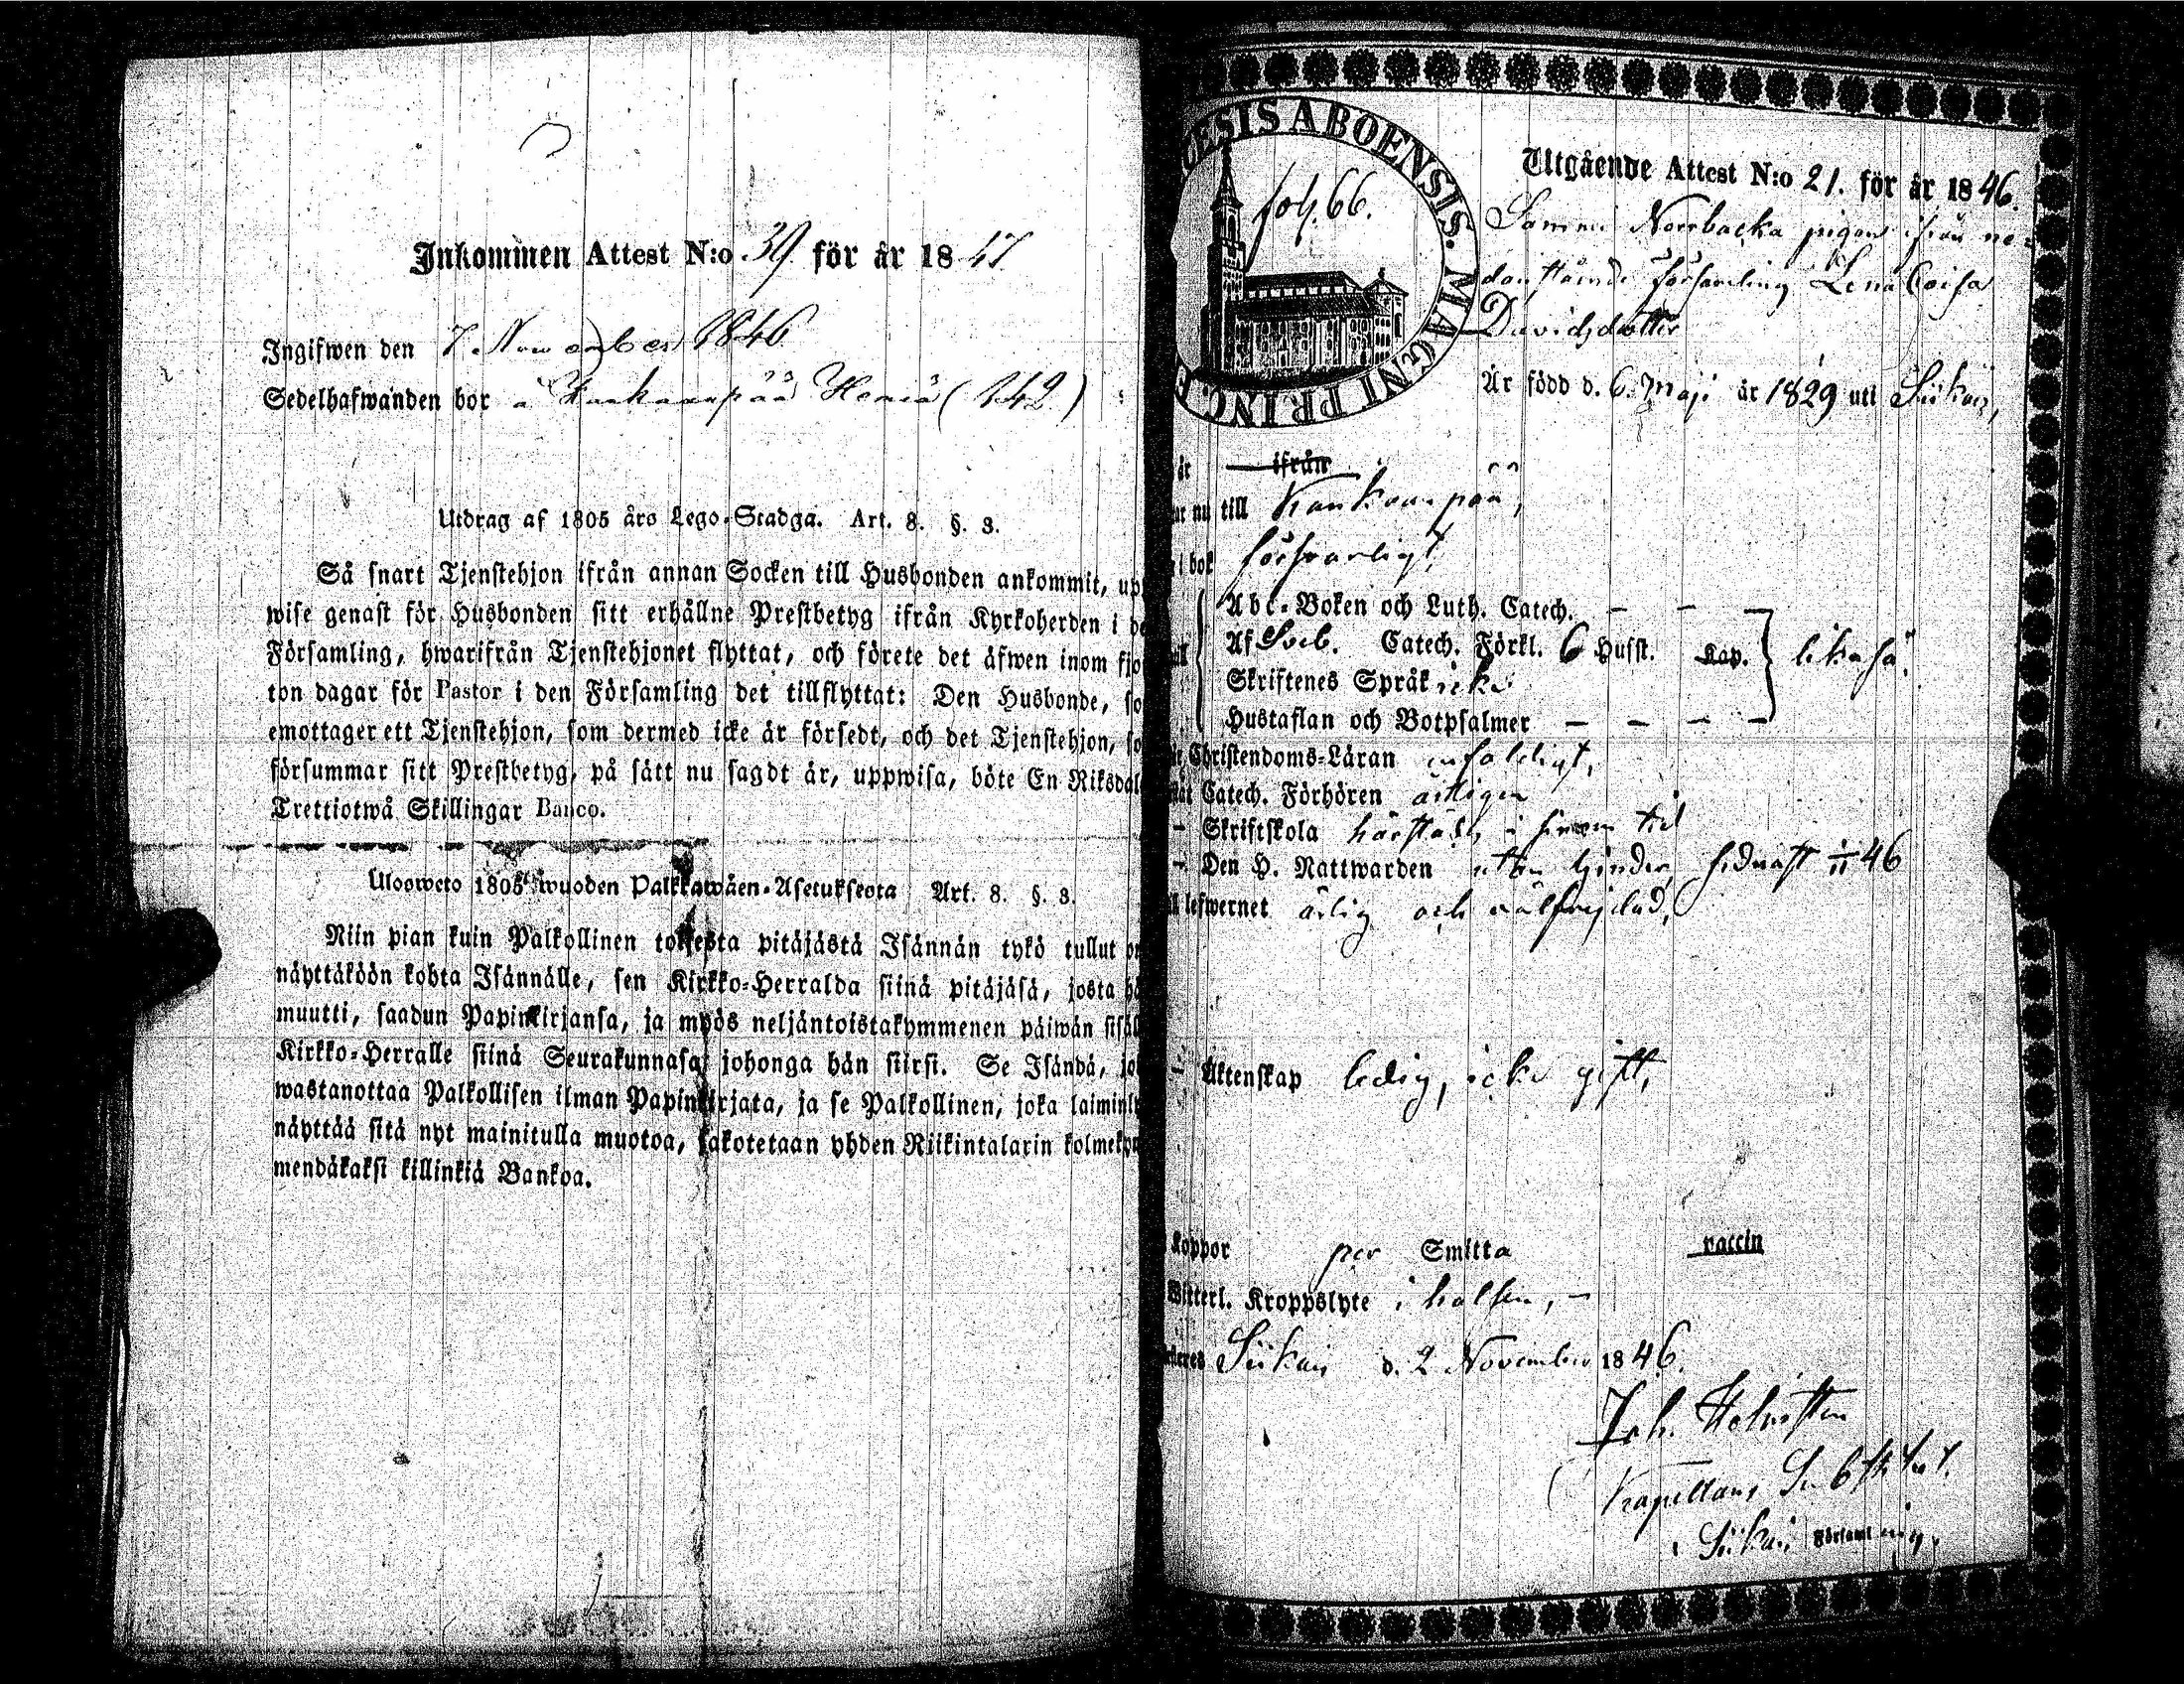 Inkommen Attest N:o 39 för år 1847
Ingifwen den 7 November 1846
Sedelhafwanden bor å Kankaanpää (142)
Utdrag af 1805 års Lego-Stadga. Art. 8. §. 3.
Så snart Tjenstehjon ifrån annan Socken till Husbonden ankommit, up
wise genast för Husbonden sitt erhållne Prestbetyg ifrån Kyrkoherden i de
Församling, hwarifrån Tjenstehjonet flyttat, och förete det äfwen inom fjo
ton dagar för Pastor i den Församling det tillflyttat: Den Husbonde, so
emottager ett Tjenstehjon, som dermed icke är försedt, och det Tjenstehjon, so
försummar sitt Prestbetyg, på sätt nu sagdt är, uppwisa, böte En Riksdal
Trettiotwå Skillingar Banco.
Ulosweto 1805 wuoden Palkkawäen-Asetuksesta Art. 8. §. 3.
Niin pian kuin Palkollinen toisesta pitäjästä Isännän tykö tullut on
näyttäköön kohta Isännälle, sen Kirkko-Herralda siinä pitäjäsä, josta hä
muutti, saadun Papinkirjansa, ja myös neljäntoistakymmenen päiwän sisäl
Kirkko-Herralle siinä Seurakunnasa, johonga hän siirsi. Se Isändä, jo
wastanottaa Palkollisen ilman Papinkirjata, ja se Palkollinen, joka laiminly
näyttää sitä nyt mainitulla muotoa, sakotetaan yhden Riikintalarin kolmeky
mendäkaksi killinkiä Bankoa.
OESIS ABOENSIS. MAGNI PRINC
fol. 66.
Utgående Attest N:o 21. för år 1846.
Norrbacka pigan ifrån ne-
danstående församling Lena Caisa
Davidsdotter
Är född d. 6 Maji år 1829 uti Siikais,
är ifrån
nu till Kankaanpää,
i bok försvarligt
Abc-Boken och Luth. Catech. — —
Af Sveb. Catech. Förkl. 6 Hufst. Kap. likaså.
Skriftenes Språk icke
Hustaflan och Botpsalmer — — — —
Christendoms-Läran enfaldigt,
Catech. Förhören årligen
— Skriftskola härstädes i sinom tid
— Den H. Nattwarden utan hinder, sednast 11 46
lefwernet ärlig och välfrejdad,
— Äktenskap ledig, icke gift,
koppor per Smitta vaccin
Witterl. Kroppslyte i halsen, —
Siikais d. 2 November 1846.
Joh. Helmstén
Kapellans Substitut.
i Siikais Församling.